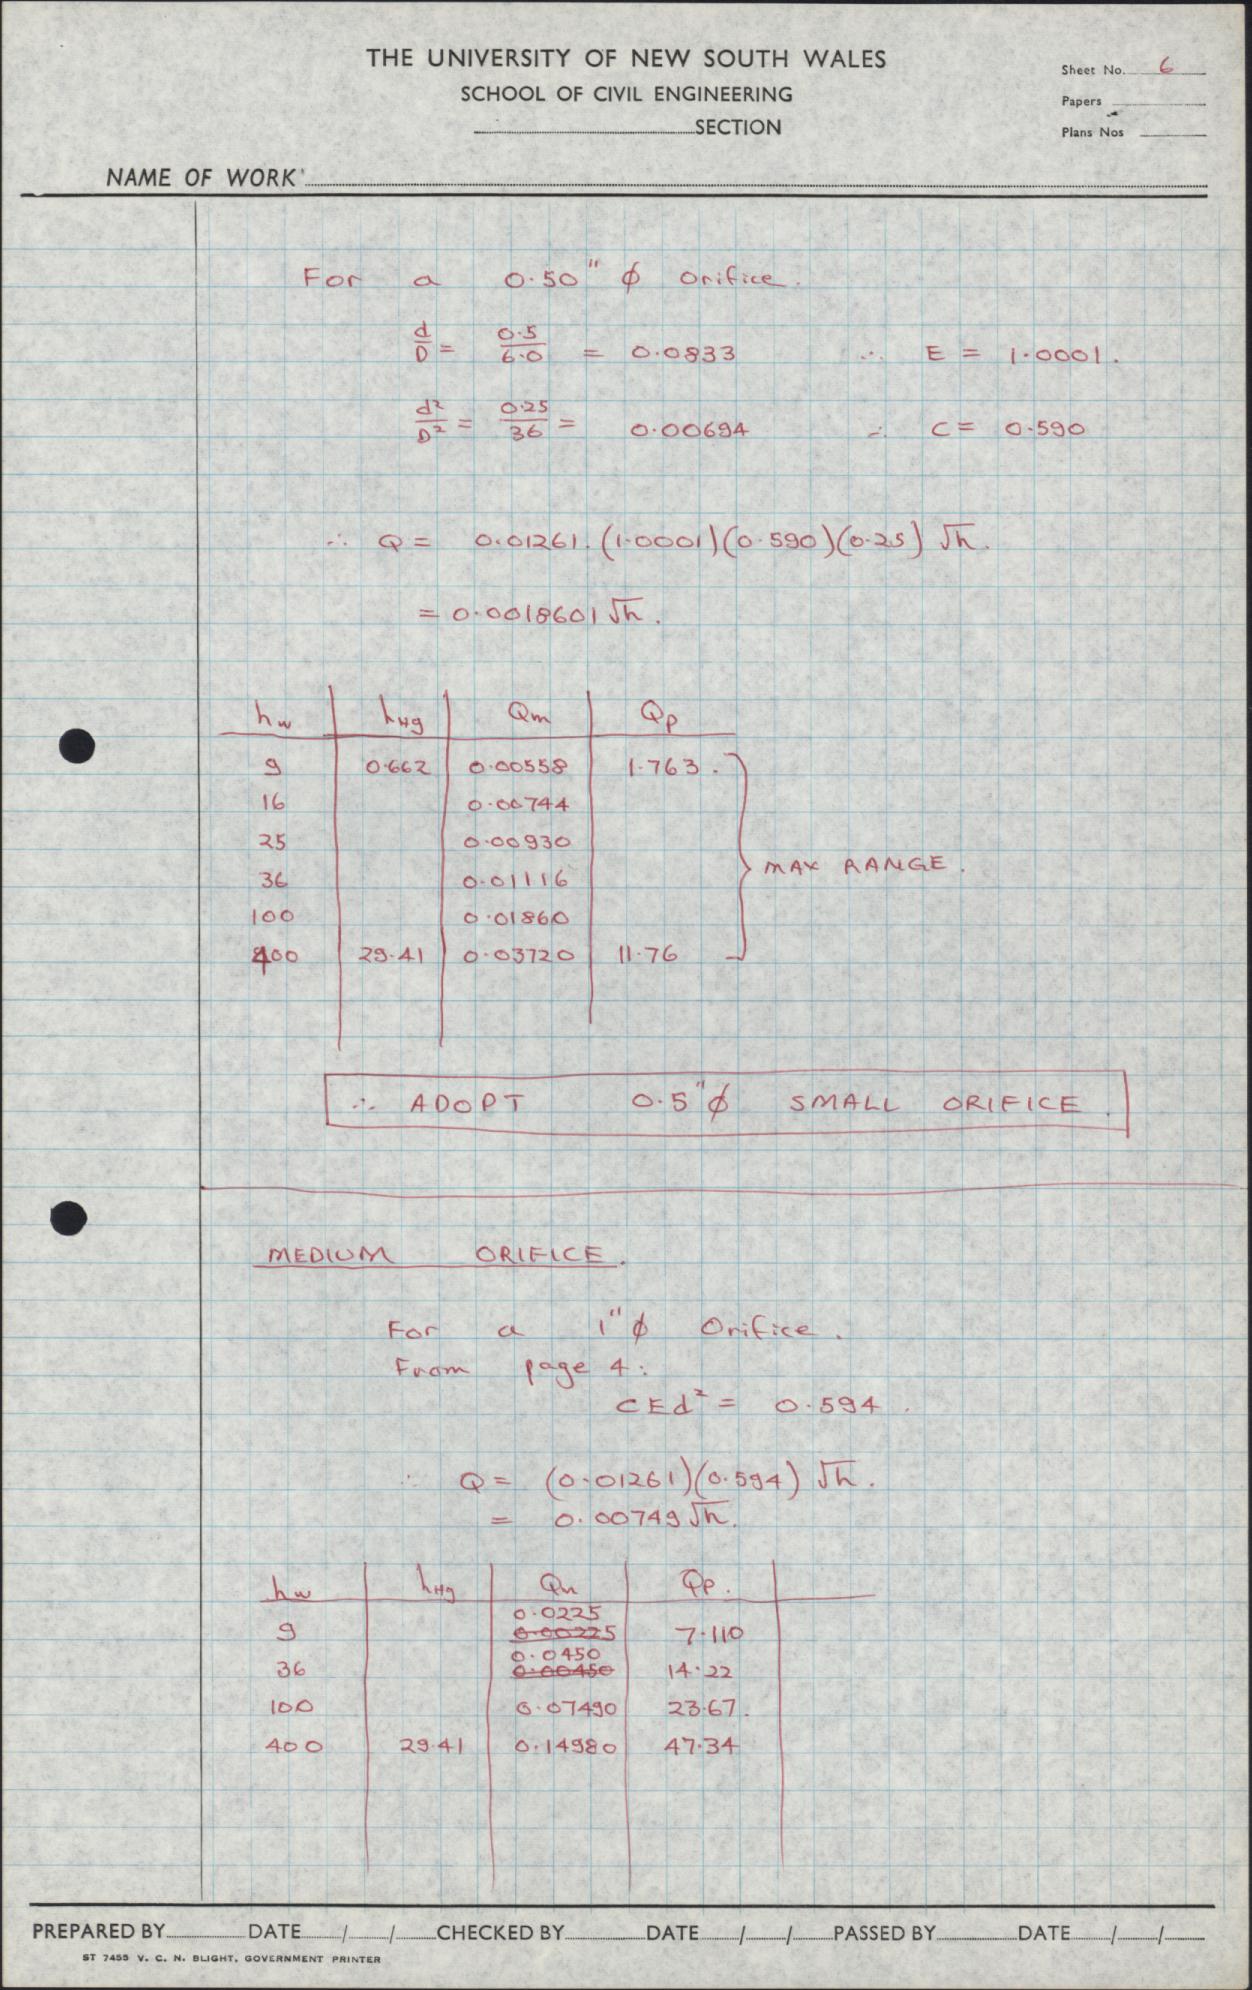 THE UNIVERSITY OF NEW SOUTH WALES
SCHOOL OF CIVIL ENGINEERING
SECTION
Sheet No. 6
Papers
Plans Nos
NAME OF WORK
For a 0.50" ϕ Orifice.
d/D = 0.5/6.0 = 0.0833 ∴ E = 1.0001.
d²/D² = 0.25/36 = 0.00694 ∴ C = 0.590
∴ Q = 0.01261.(1.0001)(0.590)(0.25) √h.
= 0.0018601 √h.
hw hHg Qm Qp
9 0.662 0.00558 1.763.
16 0.00744
25 0.00930
36 0.01116
100 0.01860
400 29.41 0.03720 11.76
MAX RANGE.
∴ ADOPT 0.5"ϕ SMALL ORIFICE.
MEDIUM ORIFICE.
For a 1"ϕ Orifice.
From page 4:
CEd² = 0.594.
∴ Q = (0.01261)(0.594) √h.
= 0.00749 √h.
hw hHg Qm Qp.
0.0225
9 0.00225 7.110
0.0450
36 0.00450 14.22
100 0.07490 23.67.
400 29.41 0.14980 47.34
PREPARED BY DATE / / CHECKED BY DATE / / PASSED BY DATE / /
ST 7455 V. C. N. BLIGHT, GOVERNMENT PRINTER